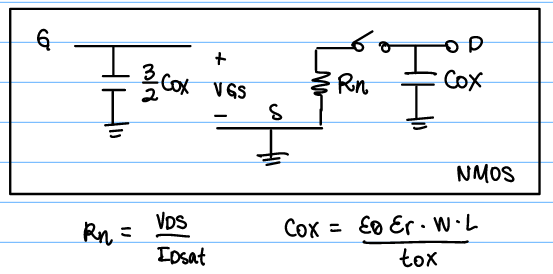 G
+
VGS
-
3/2 Cox
S
Rn
D
Cox
NMOS
Rn = VDS / IDsat
Cox = ε0 εr · W · L / tox